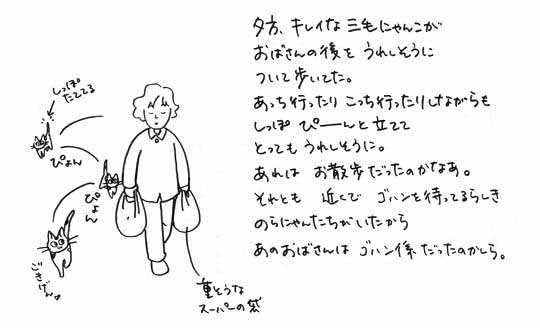 夕方、キレイな三毛にゃんこが
おばさんの後を うれしそうに
ついて歩いてた。
あっち行ったり こっち行ったりしながらも
しっぽ ぴーんと立てて
とっても うれしそうに。
あれは お散歩だったのかなあ。
それとも 近くで ゴハンを待ってるらしき
のらにゃんたちがいたから
あのおばさんは ゴハン係だったのかしら。
しっぽ
たててる
ぴょん
ぴょん
ごきげん。
重そうな
スーパーの袋